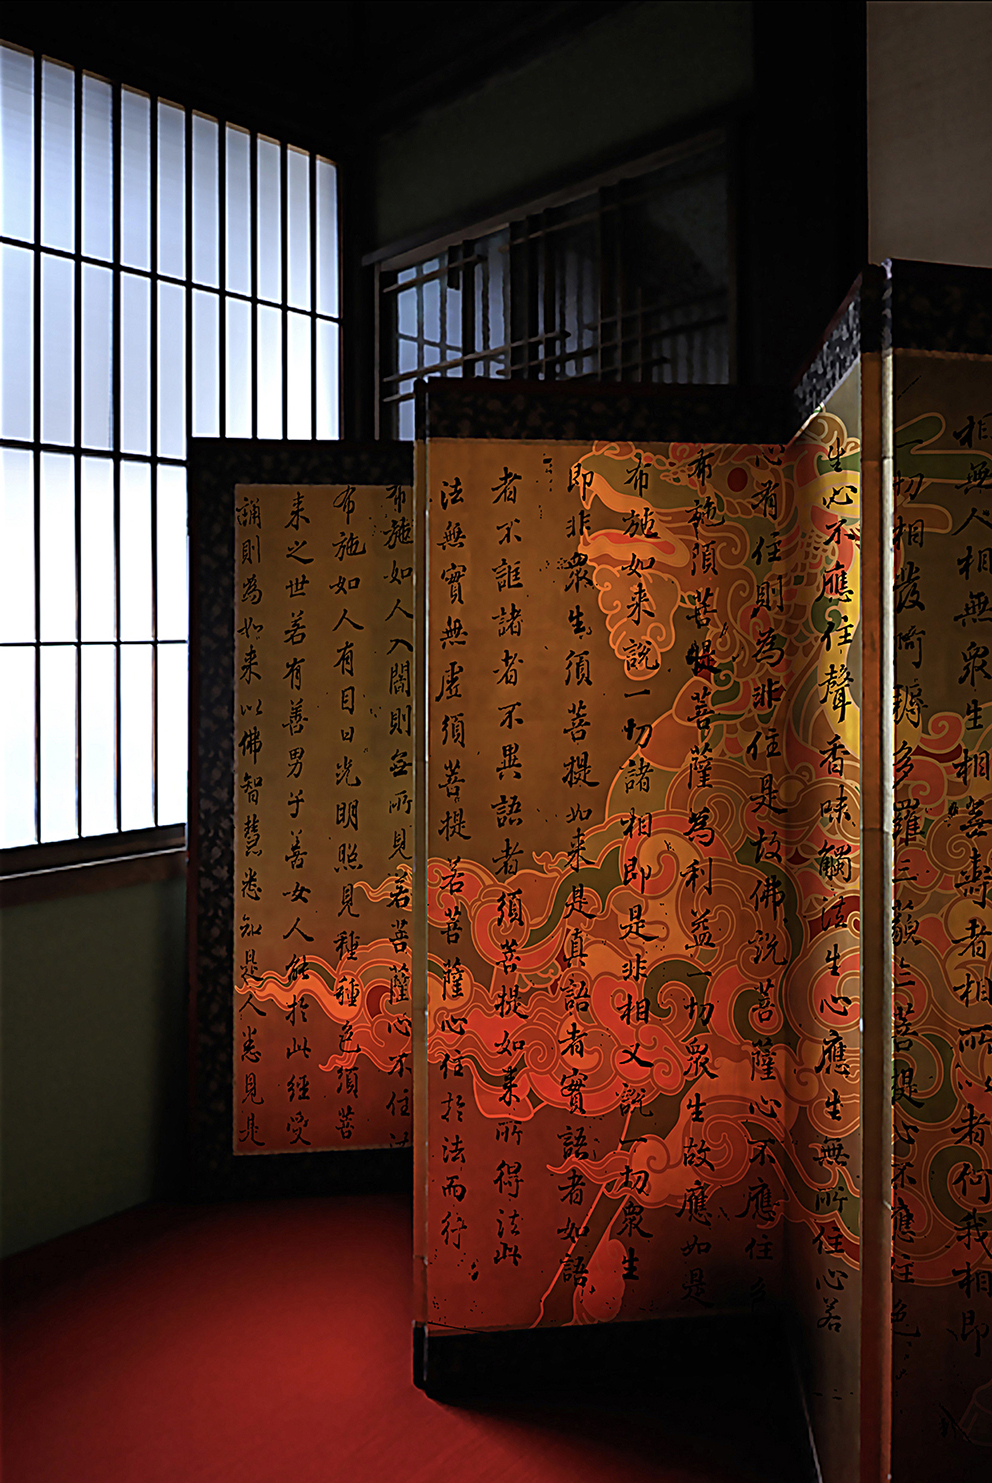 相無人相無衆生相無壽者相所以者何我相即
一切相發阿耨多羅三藐三菩提心不應住色
生心不應住聲香味觸法生心應生無所住心若
心有住則為非住是故佛說菩薩心不應住色
布施須菩提菩薩為利益一切衆生故應如是
布施如来說一切諸相即是非相又說一切衆生
即非衆生須菩提如来是真語者實語者如語
者不誑諸者不異語者須菩提如来所得法此
法無實無虛須菩提若菩薩心住於法而行
布施如人入闇則無所見若菩薩心不住法
布施如人有目日光明照見種種色須菩
来之世若有善男子善女人能於此經受
誦則為如来以佛智慧悉知是人悉見是